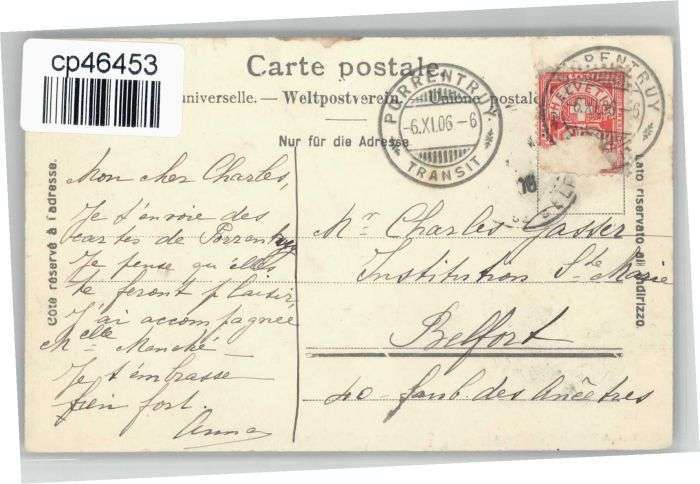 cp46453
Carte postale.
universelle. — Weltpostverein. Unione postale
Nur für die Adresse
PORRENTRUY
-6.XI.06-6
TRANSIT
PORRENTRUY
HELVETIA
Côté réservé à l'adresse.
Lato riservato all'indirizzo.
Mon cher Charles,
Je t'envoie des
cartes de Porrentruy
Je pense qu'elles
te feront plaisir,
J'ai accompagnée
Melle Menché
Je t'embrasse
bien fort.
Anna
Mr Charles Gasser
Institution Ste Marie
Belfort
40 - faub. des Ancêtres